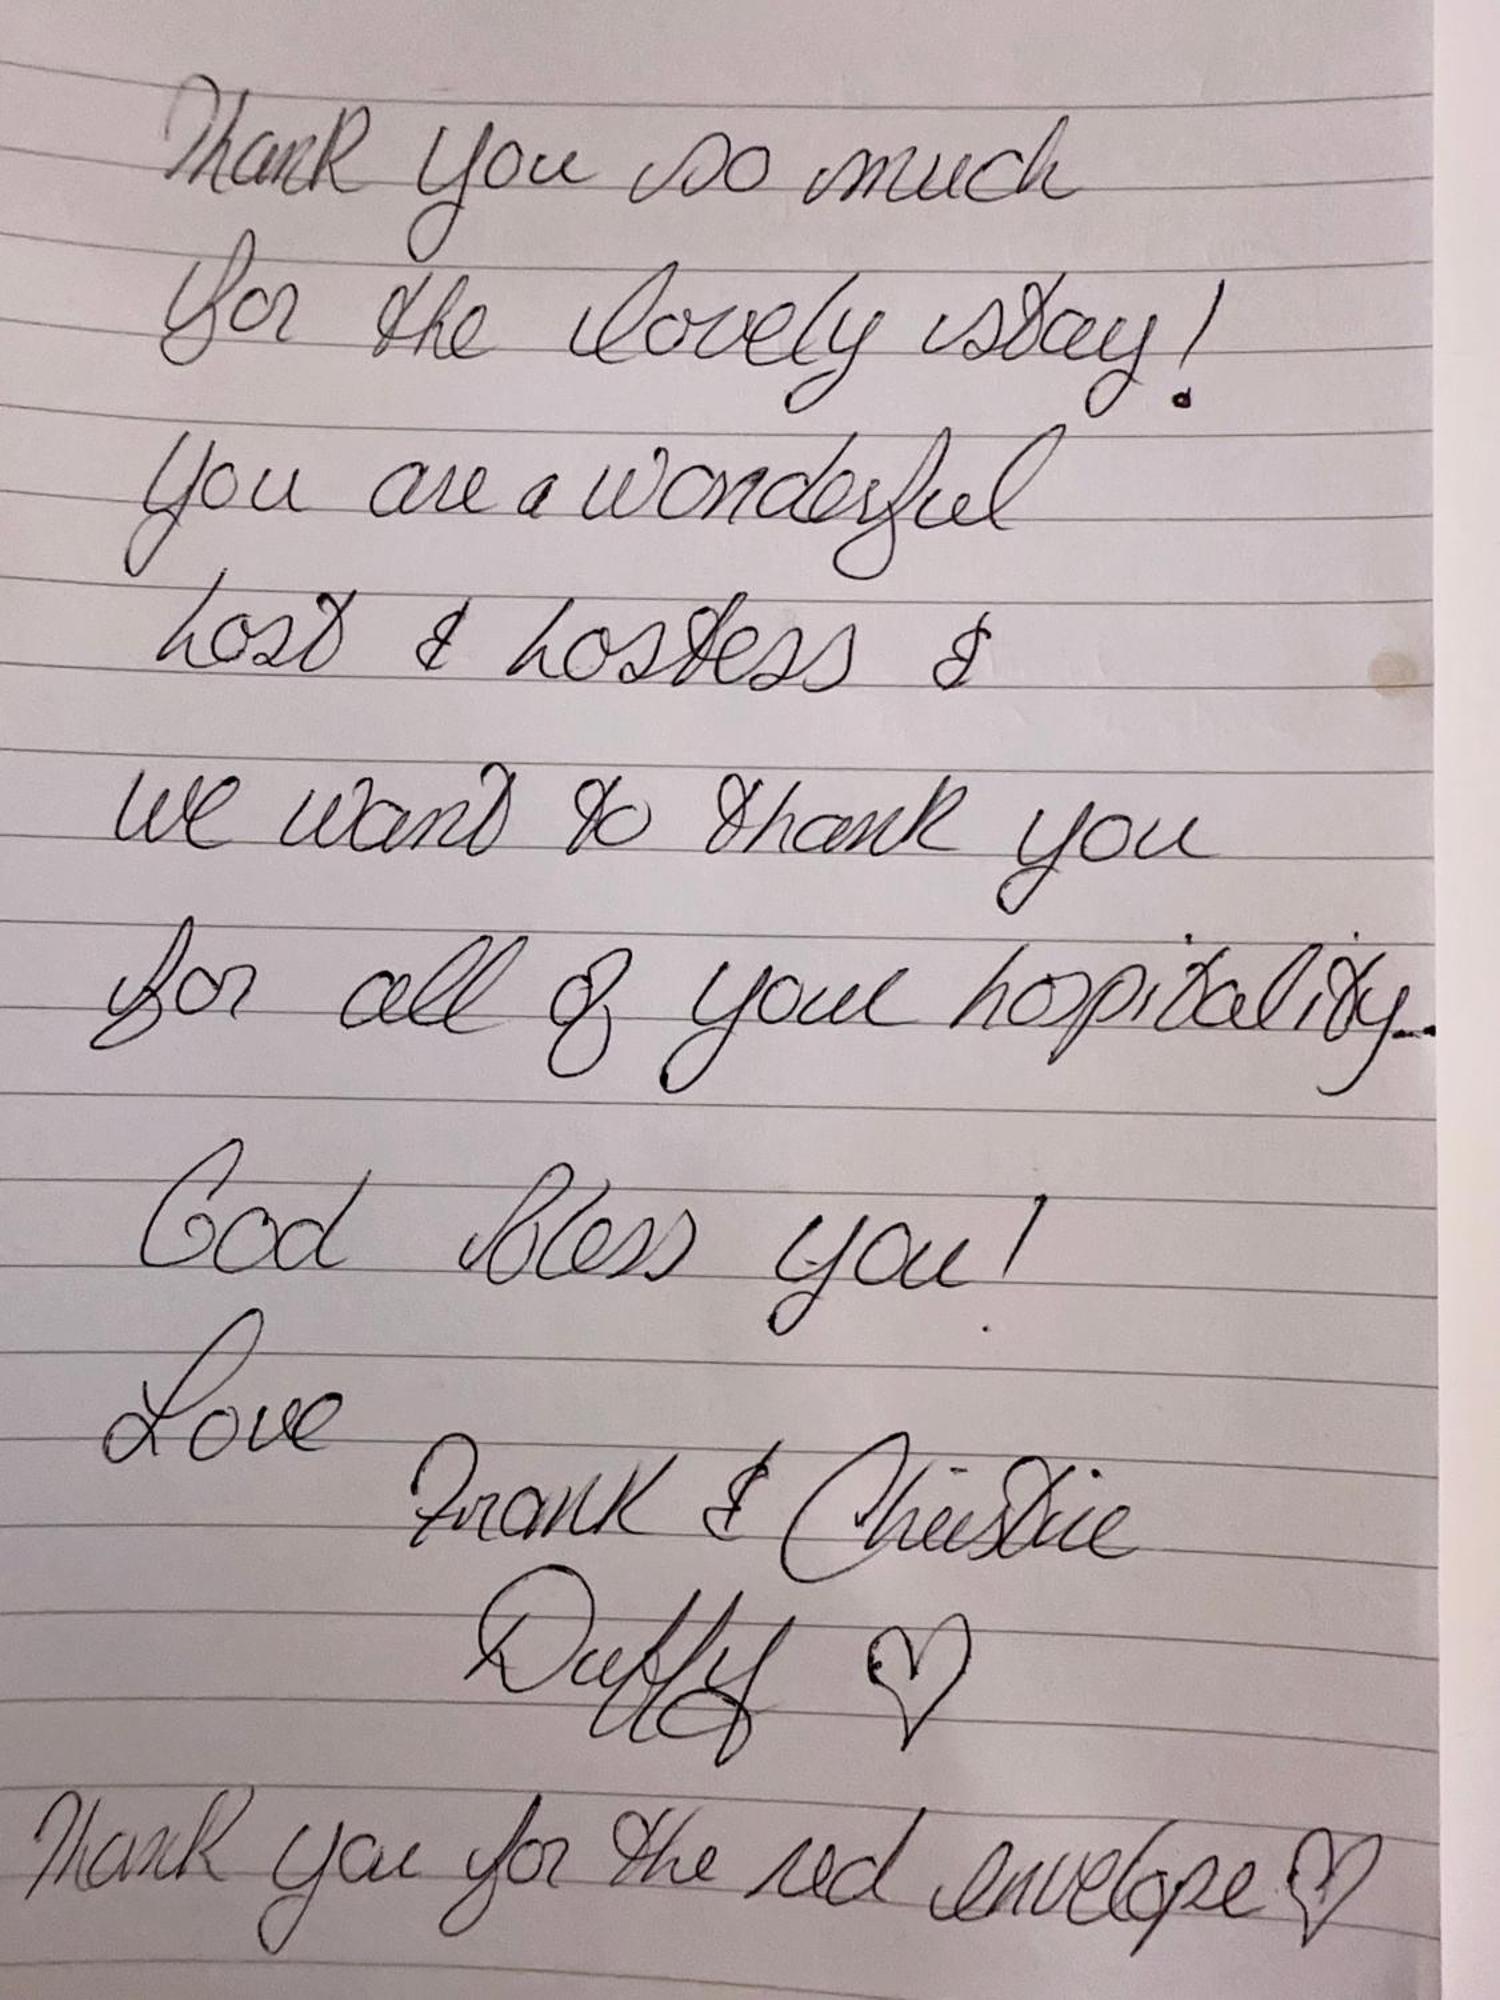 Thank you so much
for the lovely stay!
You are a wonderful
host & hostess &
we want to thank you
for all of your hospitality..
God bless you!
Love
Frank & Christie
Duffy ♡
Thank you for the red envelope ♡